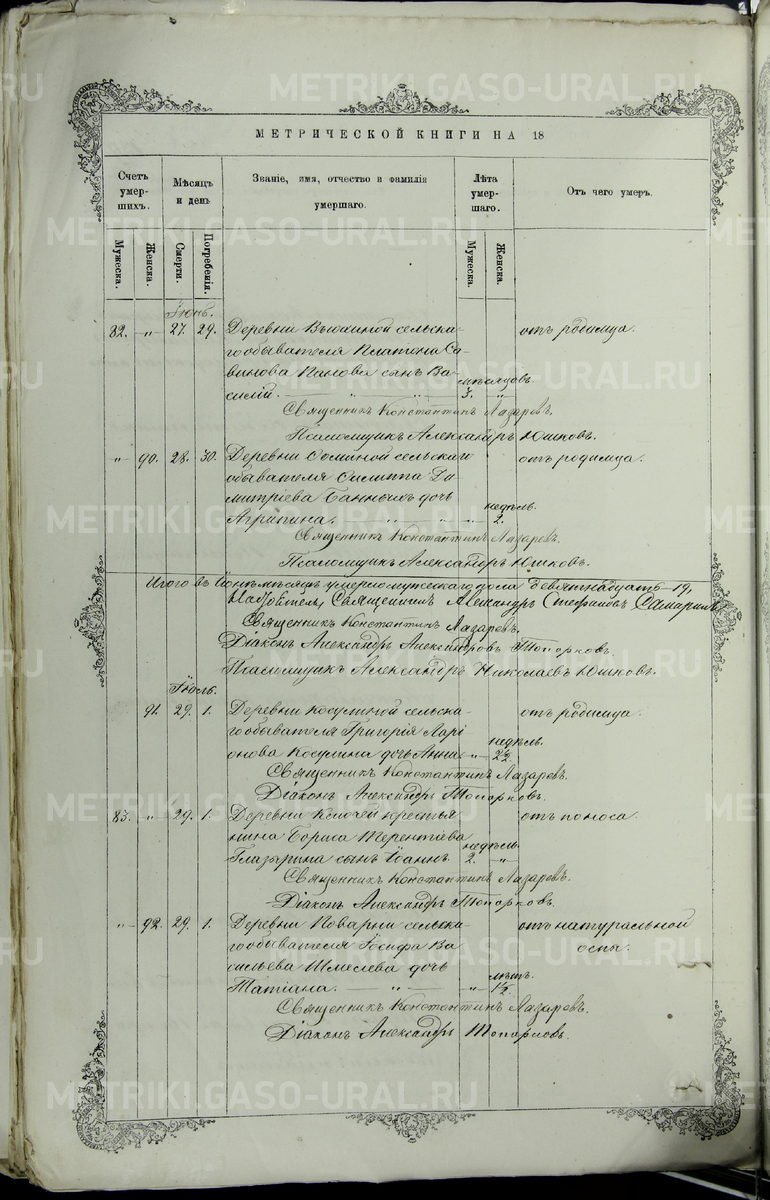 МЕТРИЧЕСКОЙ КНИГИ НА 18
Счетъ умер-шихъ.
Мѣсяцъ и день
Званіе, имя, отчество и фамилія умершаго.
Лѣта умер-шаго.
Отъ чего умеръ.
Мужеска.
Женска.
Смерти.
Погребенія.
Мужеска.
Женска.
Іюнь.
82. " 27. 29. Деревни сельска- отъ родимца.
го обывателя Платона Са-
винова Панова сынъ Ва- мѣсяцовъ.
силій. " " 3. "
Священникъ Константинъ Лазаревъ.
Псаломщикъ Александръ Юшковъ.
" 90. 28. 30. Деревни сельскаго отъ родимца.
обывателя Филиппа Ди
митріева Банныхъ дочь недѣль.
Агрипина. " " " 2.
Священникъ Константинъ Лазаревъ.
Псаломщикъ Александръ Юшковъ.
Итого въ Іюнѣ мѣсяцѣ умерло мужескаго пола девятнадцать – 19,
Священникъ Александръ Стефановъ
Священникъ Константинъ Лазаревъ,
Діаконъ Александръ Александровъ Топорковъ.
Псаломщикъ Александръ Николаевъ Юшковъ.
Іюль.
91. 29. 1. Деревни Косулиной сельска- отъ родимца.
го обывателя Григорія Ларі недѣль.
онова Косулина дочь Анна " 2½
Священникъ Константинъ Лазаревъ.
Діаконъ Александръ Топорковъ.
83. " 29. 1. Деревни крестья отъ поноса.
нина Бориса Терентіева недѣль.
Глазырина сынъ Іоаннъ 2. "
Священникъ Константинъ Лазаревъ.
Діаконъ Александръ Топорковъ.
" 92. 29. 1. Деревни Поварни сельска- отъ натуральной
го обывателя Іосифа Ва оспы.
сильева дочь лѣтъ.
Татіана. " " 1½
Священникъ Константинъ Лазаревъ.
Діаконъ Александръ Топорковъ.
METRIKI.GASO-URAL.RU